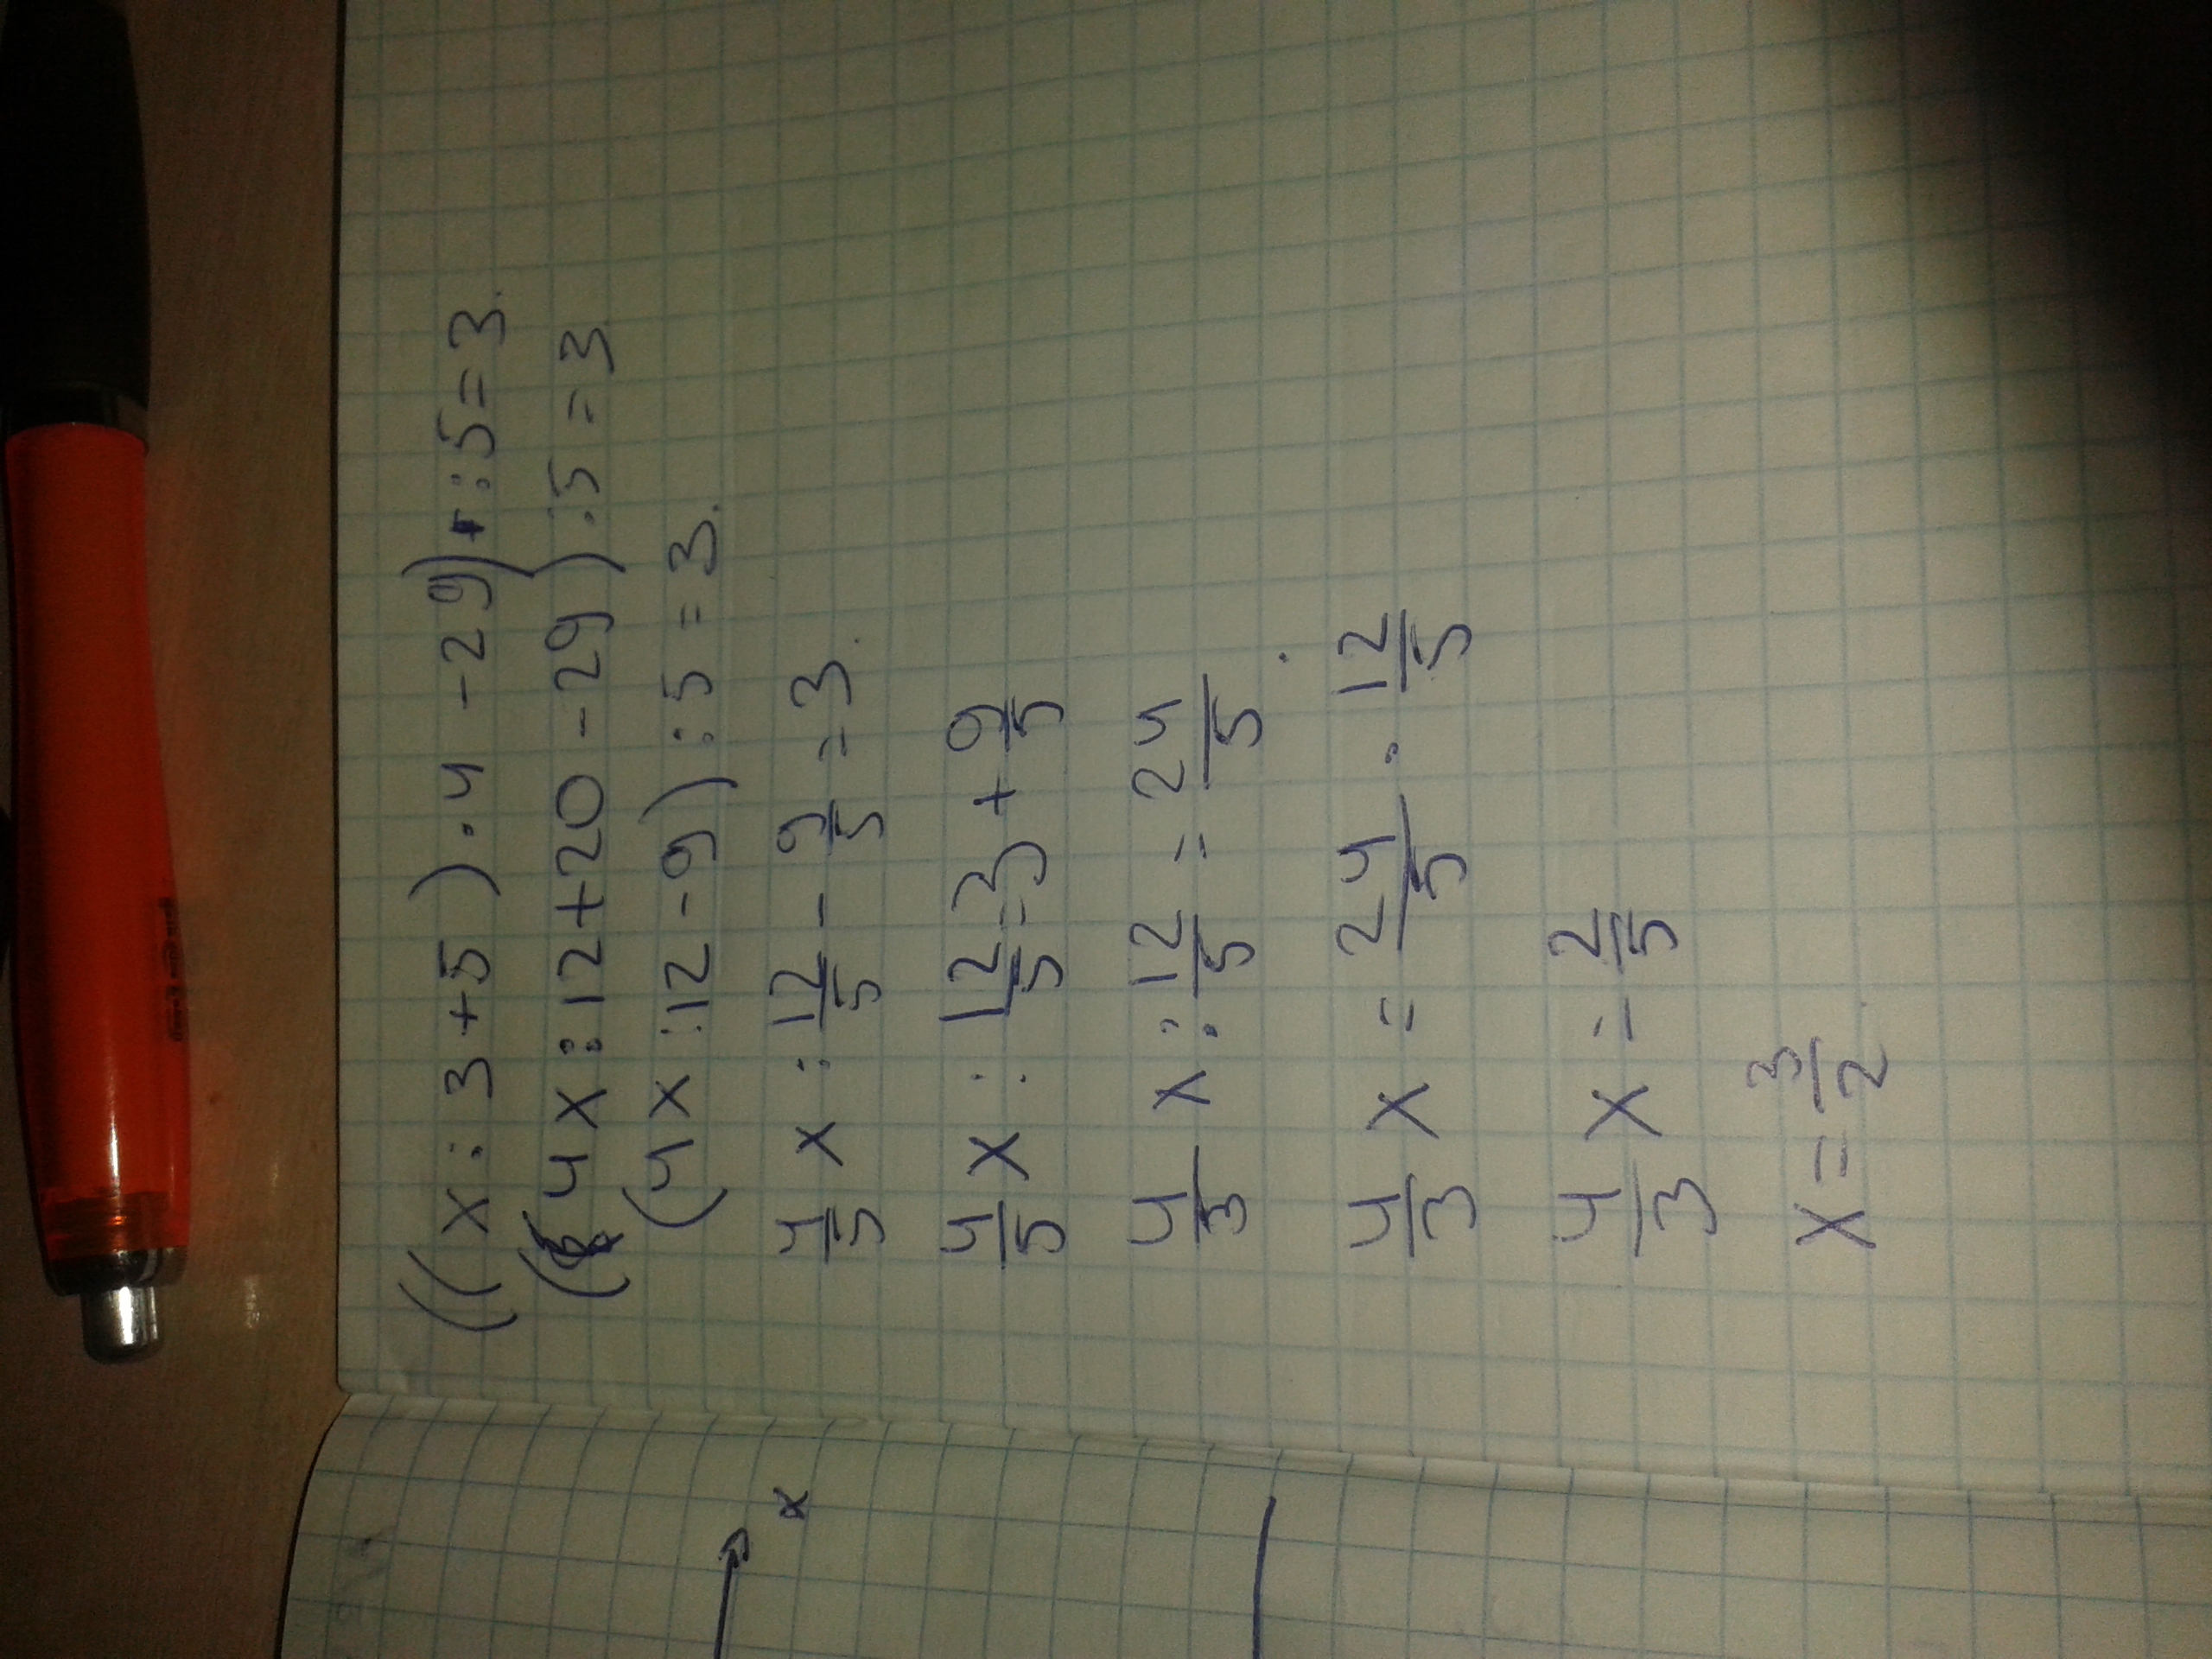 ((x:3+5)·4-29):5=3.
(4x:12+20-29):5=3
(4x:12-9):5=3.
4/5 x:12/5-9/5=3.
4/5 x:12/5=3+9/5
4/3 x:12/5=24/5.
4/3 x=24/5·12/5
4/3 x=2/5
x=3/2
x